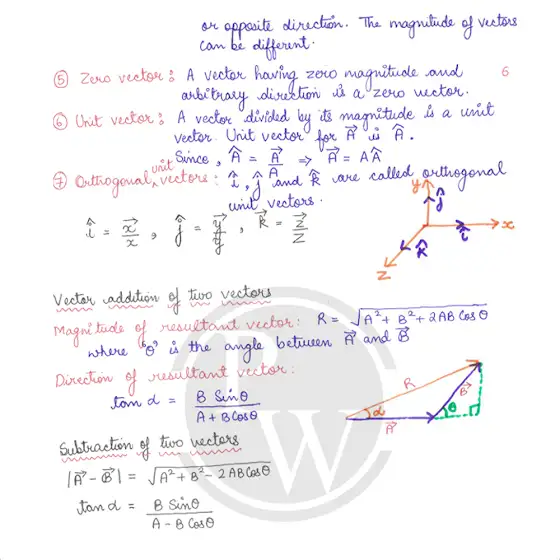 or opposite direction. The magnitude of vectors
can be different.
⑤ Zero vector : A vector having zero magnitude and
arbitrary direction is a zero vector.
6
⑥ Unit vector : A vector divided by its magnitude is a unit
vector. Unit vector for A⃗ is Â.
Since, Â = A⃗/A ⇒ A⃗ = AÂ
⑦ Orthogonal unit vectors : î, ĵ and k̂ are called orthogonal
unit vectors.
î = x⃗/x , ĵ = y⃗/y , k⃗ = z⃗/z
y ĵ x î k̂ z
Vector addition of two vectors
Magnitude of resultant vector : R = √(A² + B² + 2AB Cos θ)
where "θ" is the angle between A⃗ and B⃗
Direction of resultant vector :
tan α = B Sinθ / A + B Cosθ
R α A⃗ B⃗ θ
Subtraction of two vectors
|A⃗ - B⃗| = √(A² + B² - 2AB Cosθ)
tan α = B Sinθ / A - B Cosθ
PW